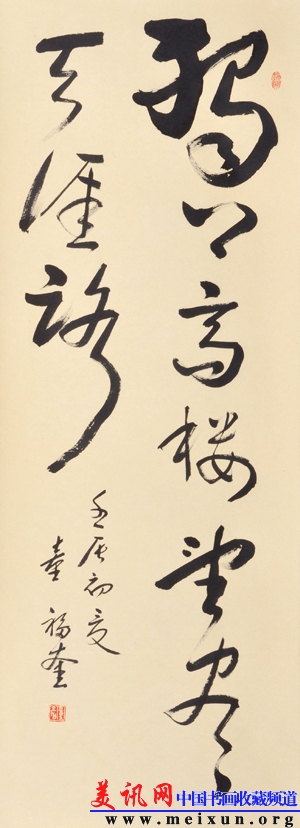 独上高楼望尽
天涯路
壬辰初夏
童福奎
美讯网 中国书画收藏频道
www.meixun.org